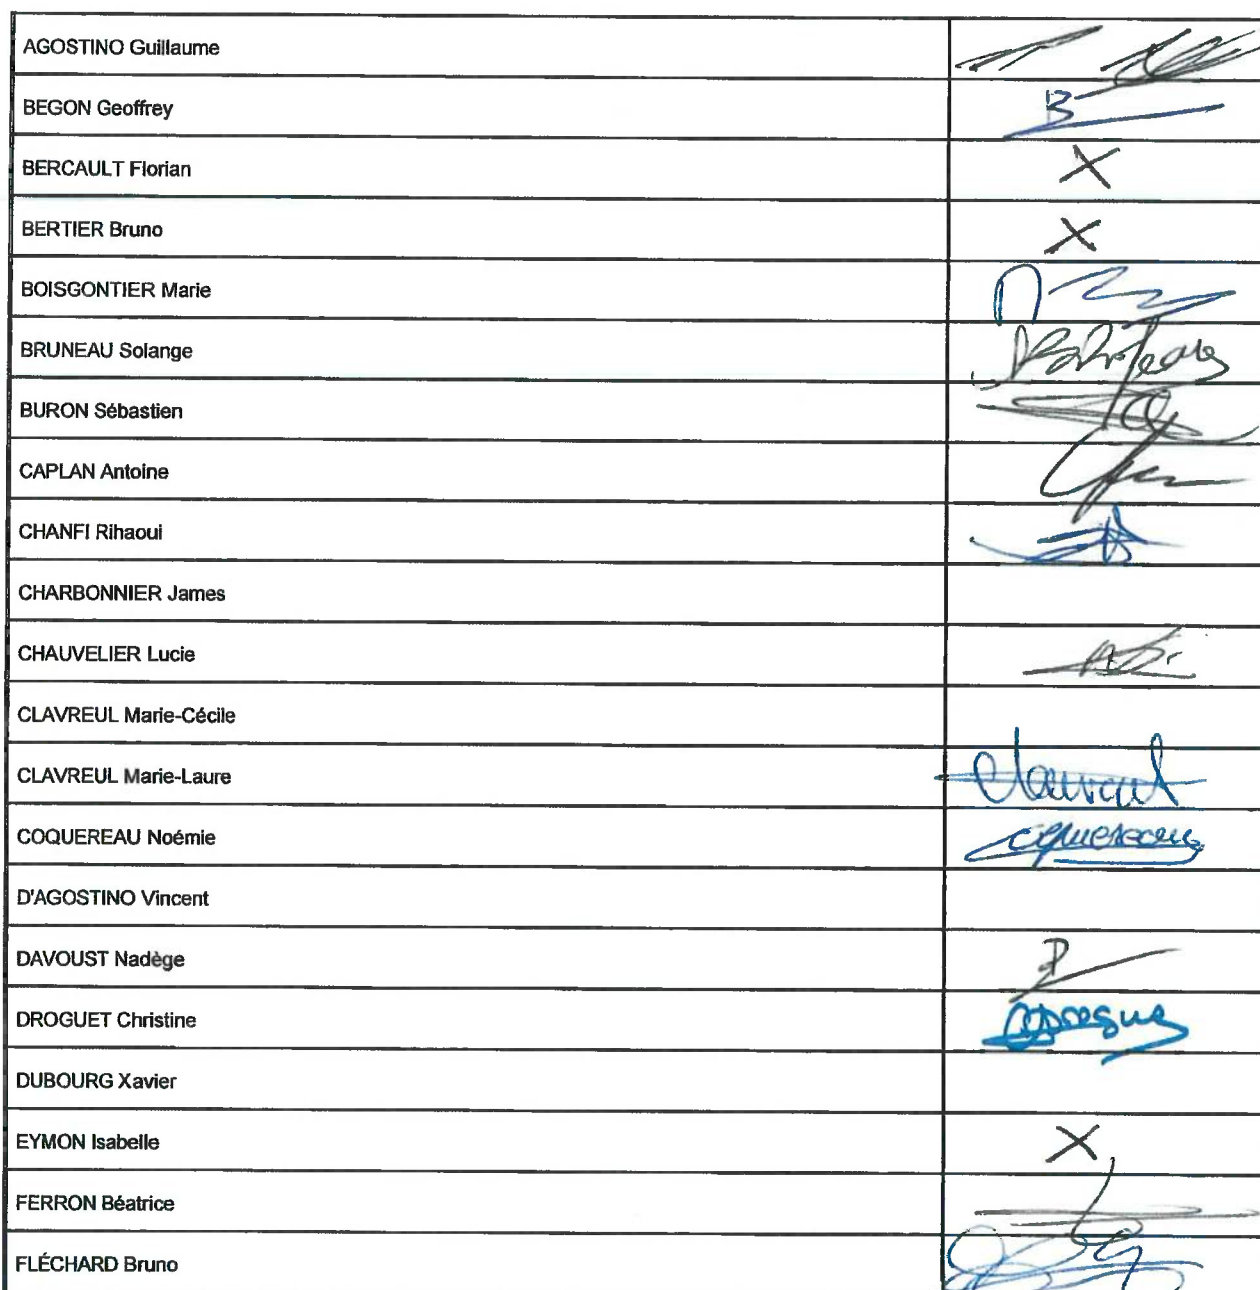 AGOSTINO Guillaume
BEGON Geoffrey
B
BERCAULT Florian
X
BERTIER Bruno
X
BOISGONTIER Marie
BRUNEAU Solange
BURON Sébastien
CAPLAN Antoine
CHANFI Rihaoui
CHARBONNIER James
CHAUVELIER Lucie
CLAVREUL Marie-Cécile
CLAVREUL Marie-Laure
COQUEREAU Noémie
D'AGOSTINO Vincent
DAVOUST Nadège
DROGUET Christine
DUBOURG Xavier
EYMON Isabelle
X
FERRON Béatrice
FLÉCHARD Bruno